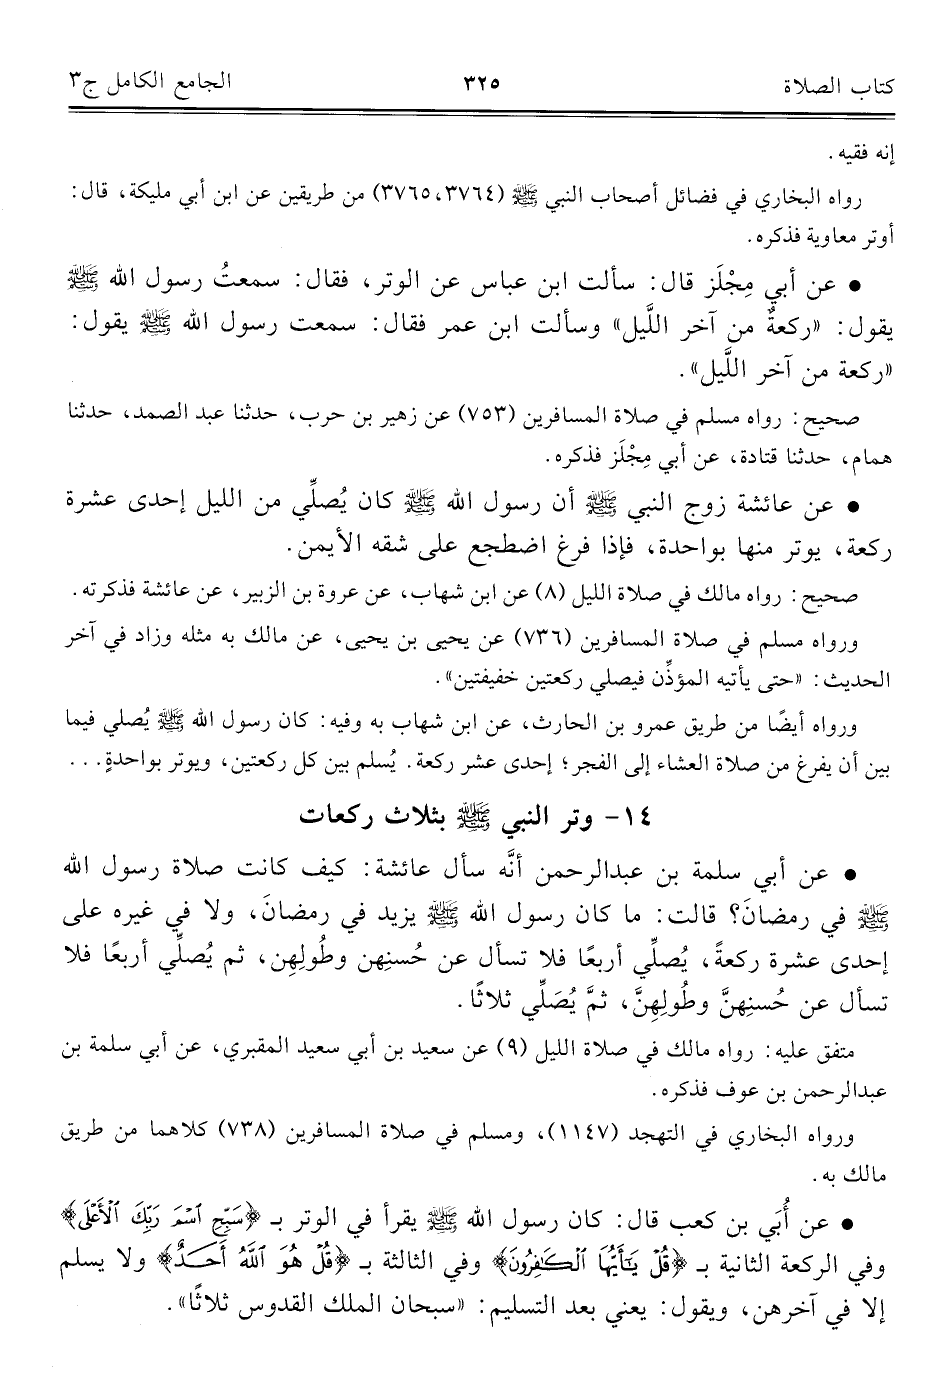 كتاب الصلاة ٣٢٥ الجامع الكامل ج٣
إنه فقيه.
رواه البخاري في فضائل أصحاب النبي ﷺ (٣٧٦٤، ٣٧٦٥) من طريقين عن ابن أبي مليكة، قال:
أوتر معاوية فذكره.
• عن أبي مِجْلَز قال: سألت ابن عباس عن الوتر، فقال: سمعتُ رسول الله ﷺ
يقول: «ركعةٌ من آخر اللَّيل» وسألت ابن عمر فقال: سمعت رسول الله ﷺ يقول:
«ركعة من آخر اللَّيل».
صحيح: رواه مسلم في صلاة المسافرين (٧٥٣) عن زهير بن حرب، حدثنا عبد الصمد، حدثنا
همام، حدثنا قتادة، عن أبي مِجْلَز فذكره.
• عن عائشة زوج النبي ﷺ أن رسول الله ﷺ كان يُصلِّي من الليل إحدى عشرة
ركعة، يوتر منها بواحدة، فإذا فرغ اضطجع على شقه الأيمن.
صحيح: رواه مالك في صلاة الليل (٨) عن ابن شهاب، عن عروة بن الزبير، عن عائشة فذكرته.
ورواه مسلم في صلاة المسافرين (٧٣٦) عن يحيى بن يحيى، عن مالك به مثله وزاد في آخر
الحديث: «حتى يأتيه المؤذِّن فيصلي ركعتين خفيفتين».
ورواه أيضًا من طريق عمرو بن الحارث، عن ابن شهاب به وفيه: كان رسول الله ﷺ يُصلي فيما
بين أن يفرغ من صلاة العشاء إلى الفجر؛ إحدى عشر ركعة. يُسلم بين كل ركعتين، ويوتر بواحدةٍ...
١٤- وتر النبي ﷺ بثلاث ركعات
• عن أبي سلمة بن عبدالرحمن أنَّه سأل عائشة: كيف كانت صلاة رسول الله
ﷺ في رمضانَ؟ قالت: ما كان رسول الله ﷺ يزيد في رمضانَ، ولا في غيره على
إحدى عشرة ركعةً، يُصلِّي أربعًا فلا تسأل عن حُسنِهن وطُولِهِن، ثم يُصلِّي أربعًا فلا
تسأل عن حُسنِهِنَّ وطُولِهِنَّ، ثمَّ يُصَلِّي ثلاثًا.
متفق عليه: رواه مالك في صلاة الليل (٩) عن سعيد بن أبي سعيد المقبري، عن أبي سلمة بن
عبدالرحمن بن عوف فذكره.
ورواه البخاري في التهجد (١١٤٧)، ومسلم في صلاة المسافرين (٧٣٨) كلاهما من طريق
مالك به.
• عن أُبَي بن كعب قال: كان رسول الله ﷺ يقرأ في الوتر بـ ﴿سَبِّحِ ٱسْمَ رَبِّكَ ٱلْأَعْلَى﴾
وفي الركعة الثانية بـ ﴿قُلْ يَٰٓأَيُّهَا ٱلْكَٰفِرُونَ﴾ وفي الثالثة بـ ﴿قُلْ هُوَ ٱللَّهُ أَحَدٌ﴾ ولا يسلم
إلا في آخرهن، ويقول: يعني بعد التسليم: «سبحان الملك القدوس ثلاثًا».